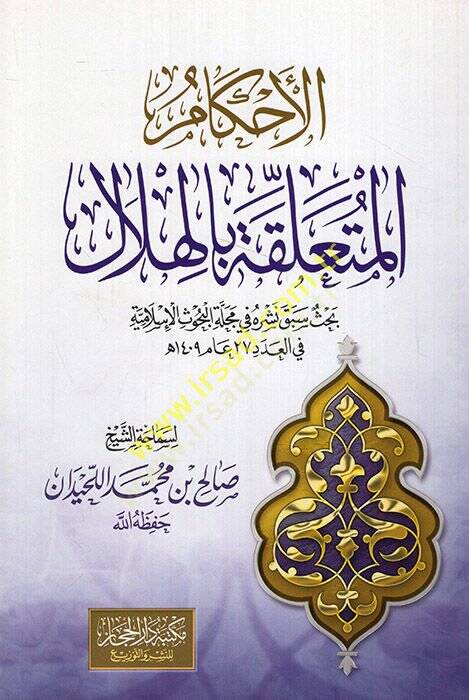 الأحكام
المتعلقة بالهلال
بحث سبق نشره في مجلة البحوث الإسلامية
في العدد ٢٧ عام ١٤٠٩هـ
لسماحة الشيخ
صالح بن محمد اللحيدان
حفظه الله
مكتبة دار الحجاز
للنشر والتوزيع
www.irsad.com.tr